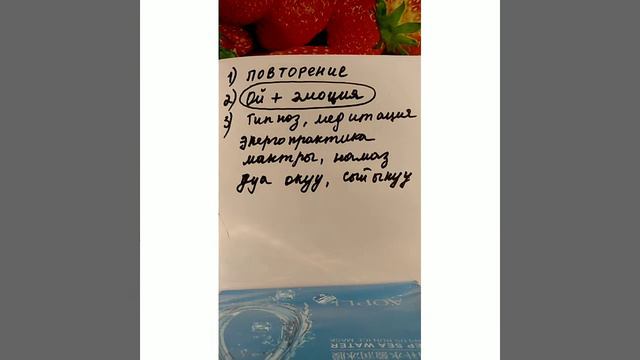 1) повторение
2) Ой + эмоция
3) Гипноз, медитация
энергопрактика
мантры, намаз
дуа окуу, сыйынуу
AOPEI
SEA WATER
ICE MASK